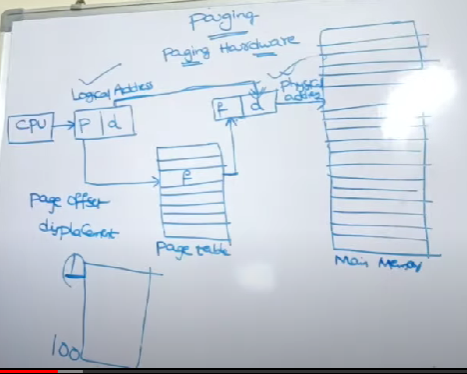 Paging
Paging Hardware
Logical Address
Physical
address
CPU
P d
f d
f
Page Offset
displacement
Page table
Main Memory
1
100